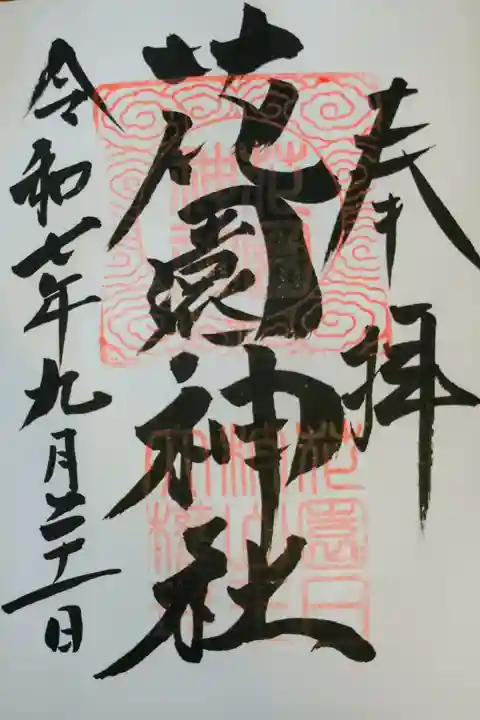 奉拝
花園神社
令和七年九月二十一日